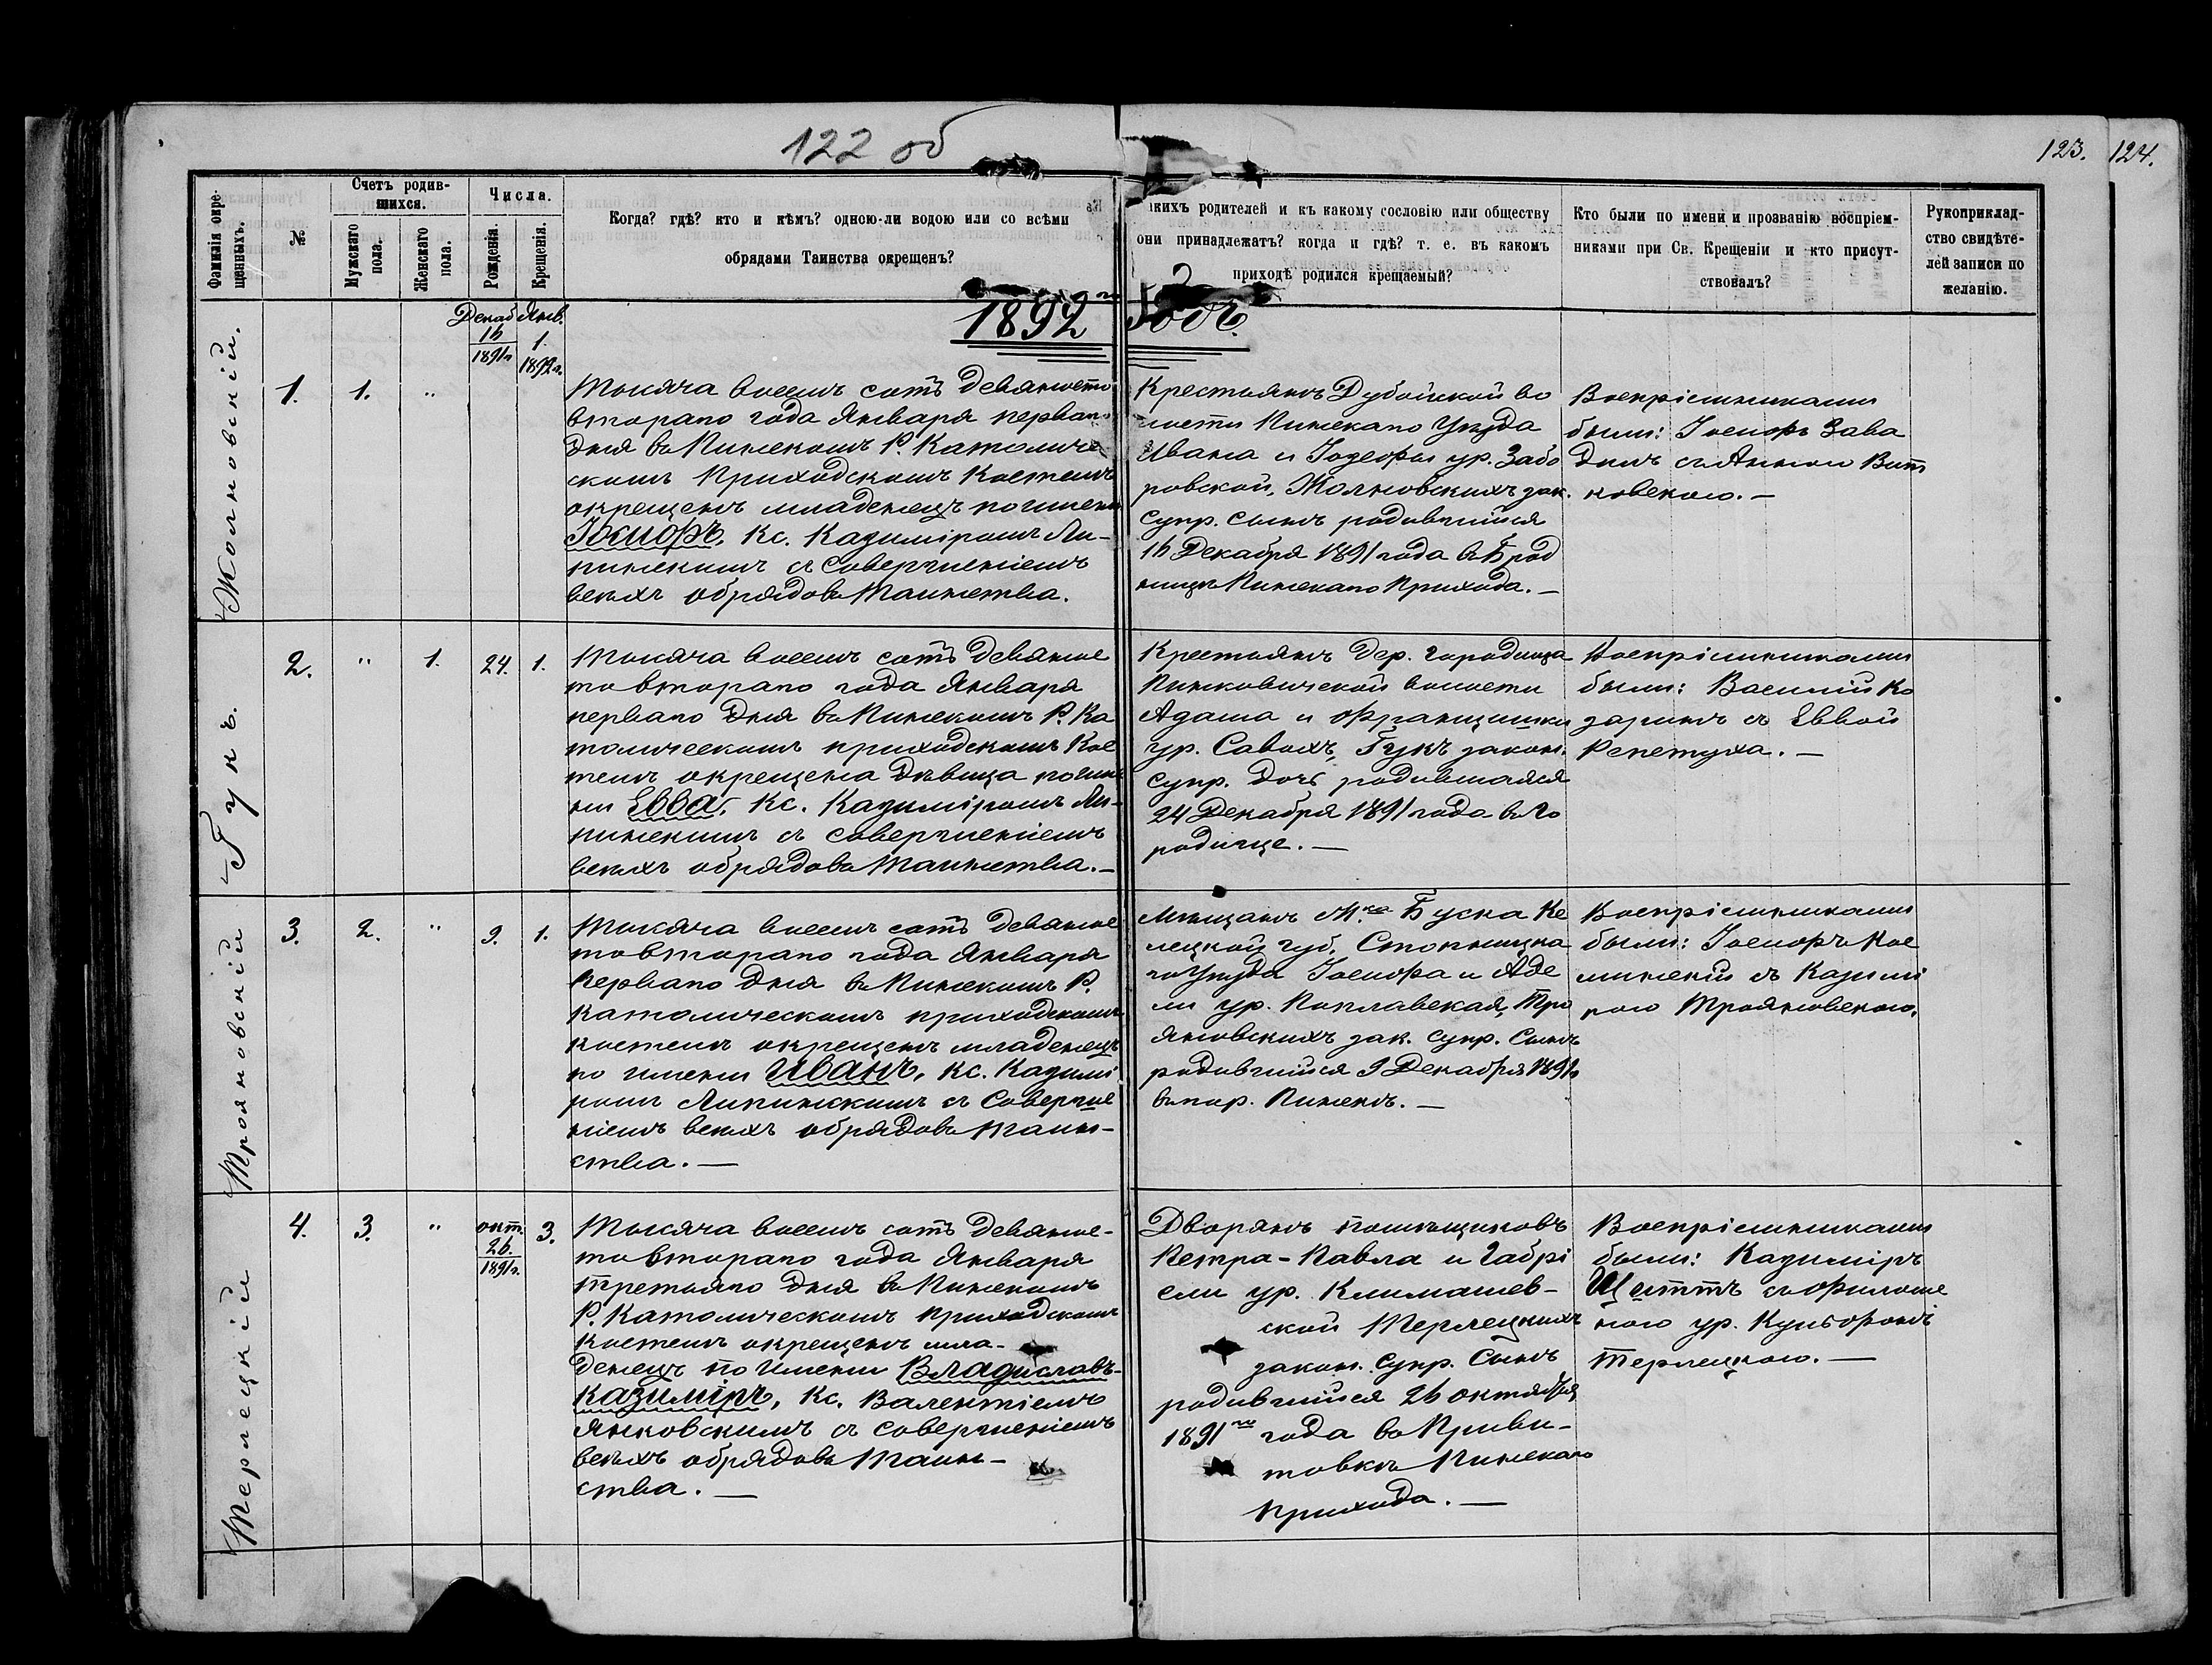 122 об
123. 124.
Фамилія окре-
щенныхъ.
№
Счетъ родив-
шихся.
Мужскаго
пола.
Женскаго
пола.
Числа.
Рожденія.
Крещенія.
Когда? гдѣ? кто и кѣмъ? одною-ли водою или со всѣми
обрядами Таинства окрещенъ?
акихъ родителей и къ какому сословію или обществу
они принадлежатъ? когда и гдѣ? т. е. въ какомъ
приходѣ родился крещаемый?
Кто были по имени и прозванію воспріем-
никами при Св. Крещеніи и кто присут-
ствовалъ?
Рукоприклад-
ство свидѣте-
лей записи по
желанію.
1892го Годъ.
Жолновскій.
1.
1.
"
Декаб
16
1891г
Янв.
1.
1892г.
Тысяча восемь сотъ девяносто
втораго года Января перваго
дня въ Пинскомъ Р. Католиче
скомъ Приходскомъ Костелѣ
окрещенъ младенецъ по имени
Іосифъ, Кс. Казиміромъ Ли-
пинскимъ съ совершеніемъ
всѣхъ обрядовъ Таинства.
Крестьянъ Дубойской во
лости Пинскаго Уѣзда
Ивана и Іозефы ур. Забо
ровской, Жолновскихъ зак.
супр. сынъ родившійся
16 Декабря 1891 года въ Брод
ницѣ Пинскаго Прихода. —
Воспріемниками
были: Іосифъ Зава
дичъ съ Анною Вит
ковскою. —
Гукъ.
2.
"
1.
24.
1.
Тысяча восемь сотъ девянос
то втораго года Января
перваго дня въ Пинскомъ Р. Ка
толическомъ приходскомъ Кос
телѣ окрещена дѣвица по име
ни Евва, Кс. Казиміромъ Ли-
пинскимъ съ совершеніемъ
всѣхъ обрядовъ Таинства. —
Крестьянъ дер. Городища
Пинковичской волости
Адама и Францишки
ур. Савохъ, Гукъ закон.
супр. дочь родившаяся
24 Декабря 1891 года въ Го
родище. —
Воспріемниками
были: Василій Ко
заринъ съ Еввой
Репетуха. —
Трояновскій
3.
2.
"
9.
1.
Тысяча восемь сотъ девянос
то втораго года Января
перваго дня въ Пинскомъ Р.
Католическомъ приходскомъ
костелѣ окрещенъ младенецъ
по имени Иванъ, Кс. Казимі
ромъ Липинскимъ съ соверше
ніемъ всѣхъ обрядовъ Таин-
ства. —
Мѣщанъ М.ка Буска Ке
лецкой губ. Стопницка
го Уѣзда Іосифа и Аде
ли ур. Поплавская, Тро
яновскихъ зак. супр. сынъ
родившійся 9 Декабря 1891г
въ гор. Пинскѣ. —
Воспріемниками
были: Іосифъ Кос
минскій съ Казими
рою Трояновскою.
Терлецкій
4.
3.
"
окт.
26.
1891г.
3.
Тысяча восемь сотъ девянос-
то втораго года Января
третьяго дня въ Пинскомъ
Р. Католическомъ приходскомъ
костелѣ окрещенъ мла-
денецъ по имени Владиславъ-
Казиміръ, Кс. Валентіемъ
Янковскимъ съ совершеніемъ
всѣхъ обрядовъ Таин-
ства. —
Дворянъ помѣщиковъ
Петра-Павла и Габрі
ели ур. Климашев-
ской Терлецкихъ
закон. супр. сынъ
родившійся 26 октября
1891го года въ Приви-
товкѣ Пинскаго
Прихода. —
Воспріемниками
были: Казиміръ
съ Филоме
ною ур.
Терлецкою. —